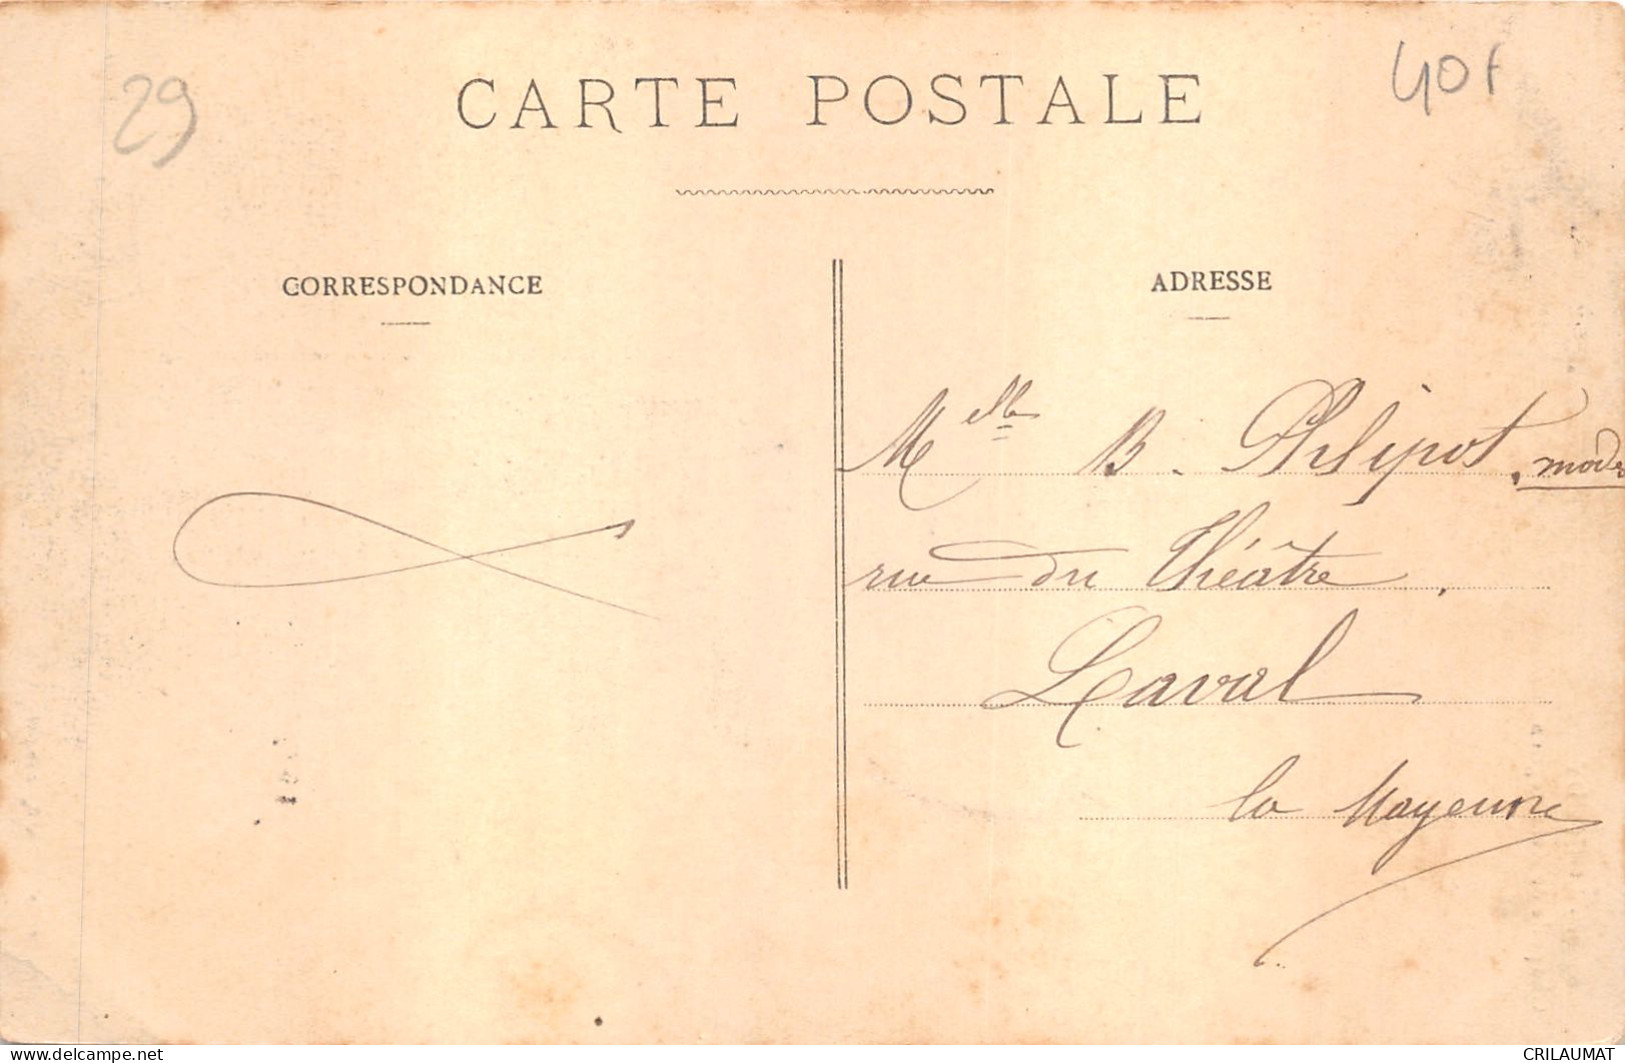 29
40f
CARTE POSTALE
CORRESPONDANCE
ADRESSE
Melle B. Phlipot, modes
rue du Théâtre,
Laval
la Mayenne
www.delcampe.net
CRILAUMAT